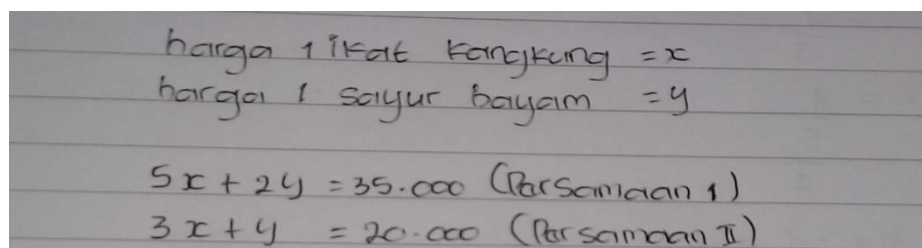 harga 1 ikat kangkung = x
harga 1 sayur bayam = y
5x + 2y = 35.000 (Persamaan 1)
3x + y = 20.000 (Persamaan II)